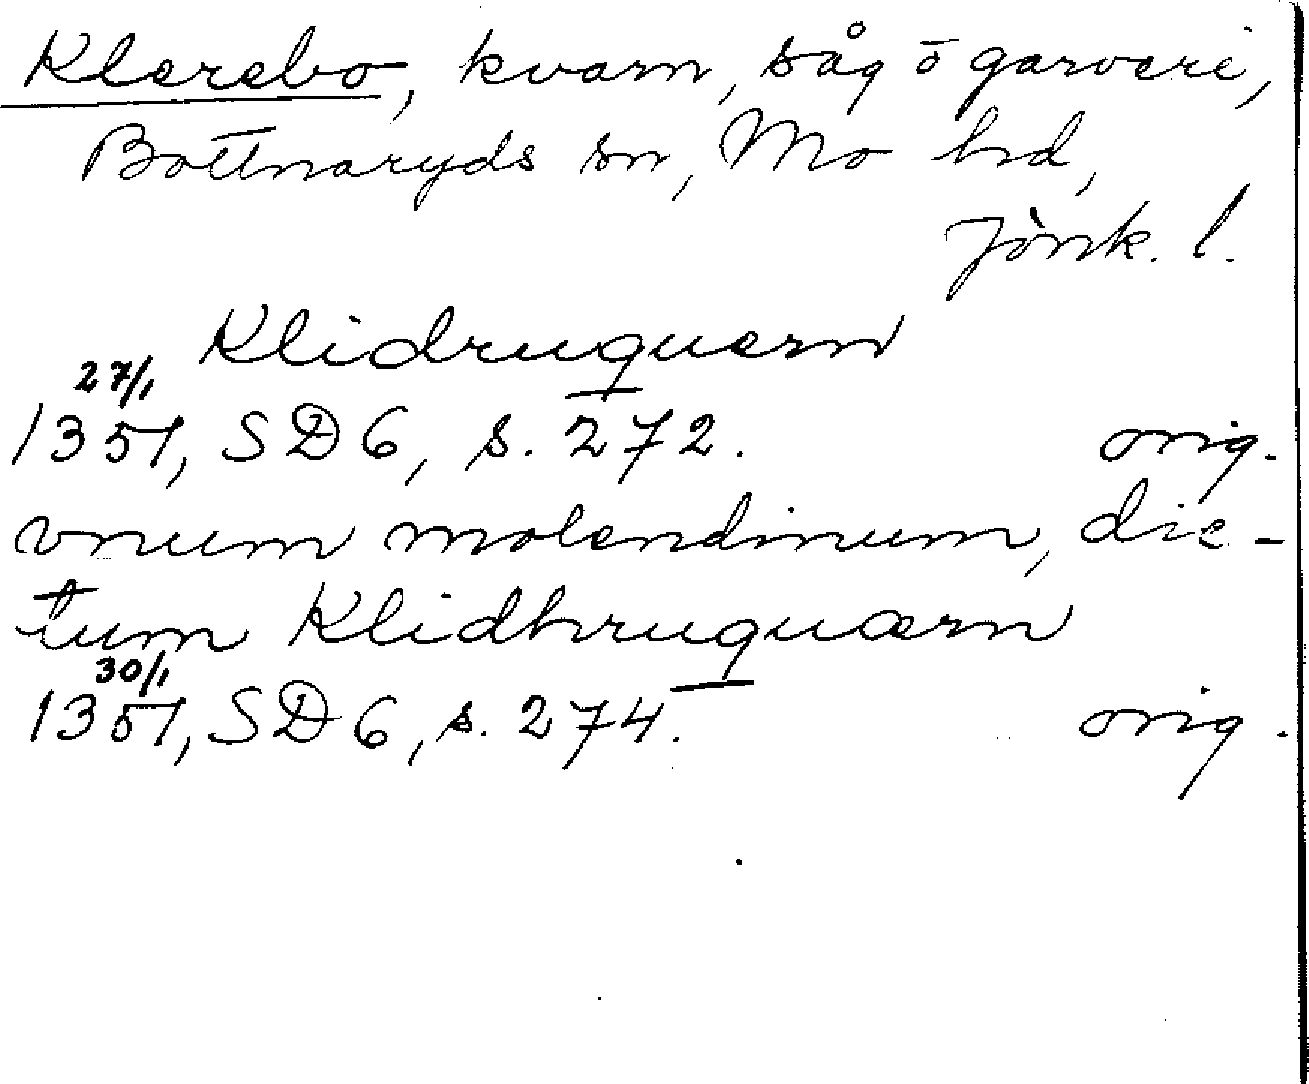 Klerebo, kvarn, såg o garveri,
Bottnaryds sn, Mo hd,
Jönk. l.
Klidruquern
27/1
1351, SD 6, s. 272. orig.
vnum molendinum, dic-
tum Klidhruquærn
30/1
1351, SD 6, s. 274. orig.